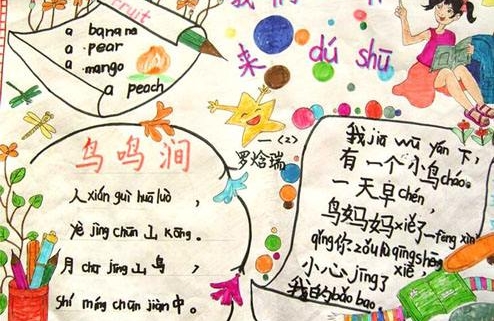 fruit
a banana
a pear
a mango
a peach
来 dú shū
一(2)
罗焓瑞
鸟鸣涧
人xián guì huā luò，
yè jìng chūn 山 kōng。
月 chū jīng 山 鸟，
shí míng chūn jiàn 中。
我jiā wū yán 下，
有一个小鸟cháo。
一天早chén，
鸟妈妈xiě了一fēng xìn
qǐng你zǒu lù qīng shēng
xiē，
小心jīng了
我的bǎo bao